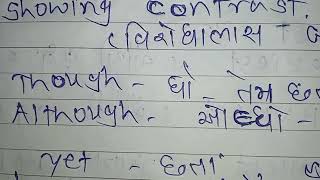 Showing contrast.
(વિરોધાભાસ
Though - ધો - તેમ
Although - ઓલ્ધો -
yet - છતાં